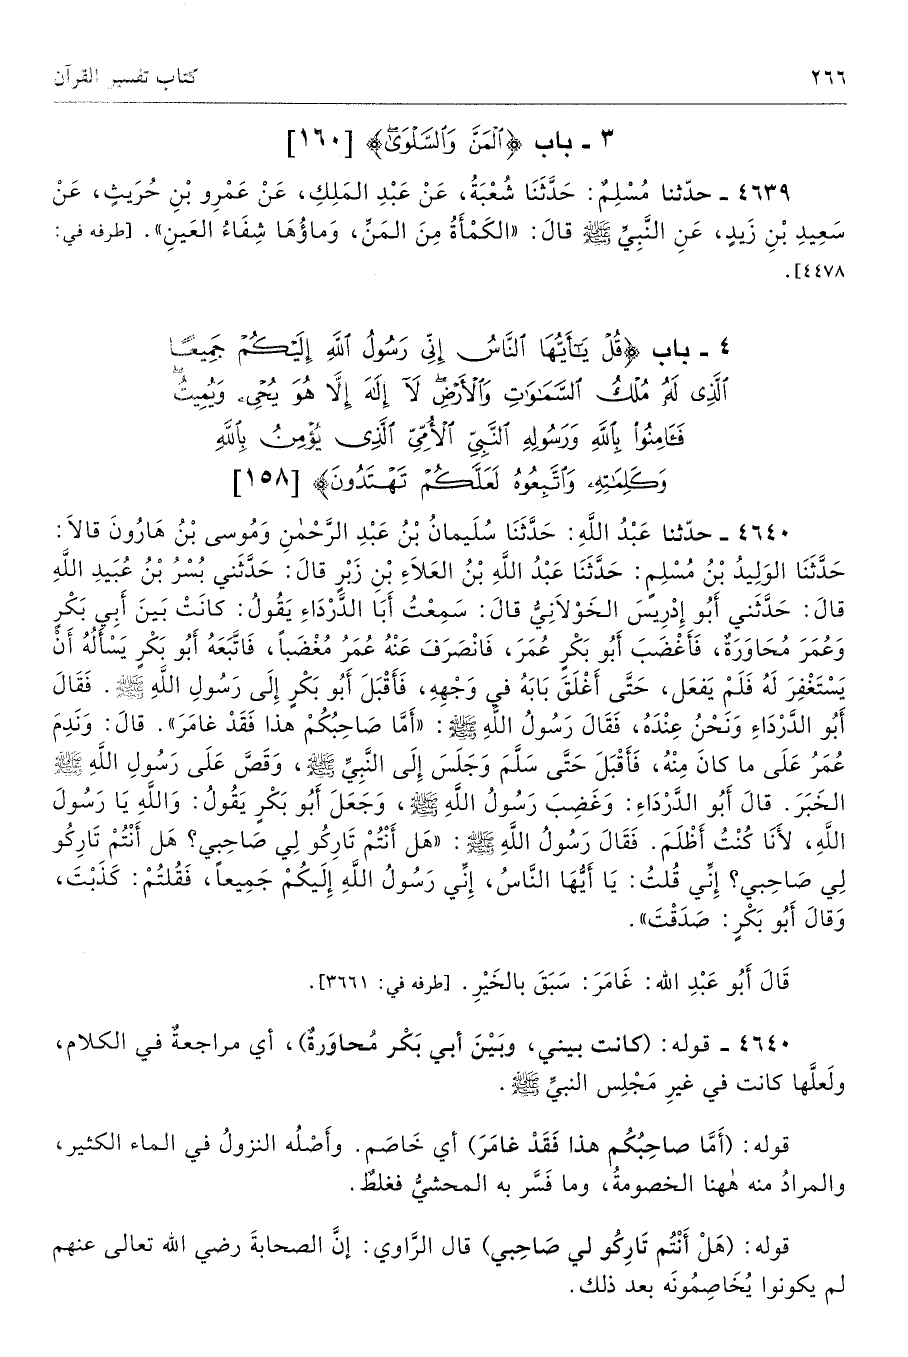 ٢٦٦ كتاب تفسير القرآن
٣ ـ باب ﴿ٱلْمَنَّ وَٱلسَّلْوَىٰۖ﴾ [١٦٠]
٤٦٣٩ ـ حدّثنا مُسْلِمٌ: حَدَّثَنَا شُعْبَةُ، عَنْ عَبْدِ المَلِكِ، عَنْ عَمْرِو بْنِ حُرَيثٍ، عَنْ
سَعِيدِ بْنِ زَيدٍ، عَنِ النَّبِيِّ ﷺ قالَ: «الكَمْأَةُ مِنَ المَنِّ، وَماؤُهَا شِفَاءُ العَينِ». [طرفه في:
٤٤٧٨].
٤ ـ باب ﴿قُلْ يَٰٓأَيُّهَا ٱلنَّاسُ إِنِّى رَسُولُ ٱللَّهِ إِلَيْكُمْ جَمِيعًا
ٱلَّذِى لَهُۥ مُلْكُ ٱلسَّمَٰوَٰتِ وَٱلْأَرْضِۖ لَآ إِلَٰهَ إِلَّا هُوَ يُحْىِۦ وَيُمِيتُۖ
فَـَٔامِنُوا۟ بِٱللَّهِ وَرَسُولِهِ ٱلنَّبِىِّ ٱلْأُمِّىِّ ٱلَّذِى يُؤْمِنُ بِٱللَّهِ
وَكَلِمَٰتِهِۦ وَٱتَّبِعُوهُ لَعَلَّكُمْ تَهْتَدُونَ﴾ [١٥٨]
٤٦٤٠ ـ حدّثنا عَبْدُ اللَّهِ: حَدَّثَنَا سُلَيمانُ بْنُ عَبْدِ الرَّحْمٰنِ وَمُوسى بْنُ هَارُونَ قالاَ:
حَدَّثَنَا الوَلِيدُ بْنُ مُسْلِمٍ: حَدَّثَنَا عَبْدُ اللَّهِ بْنُ العَلاَءِ بْنِ زَبْرٍ قالَ: حَدَّثَني بُسْرُ بْنُ عُبَيدِ اللَّهِ
قالَ: حَدَّثَني أَبُو إِدْرِيسَ الخَوْلاَنِيُّ قالَ: سَمِعْتُ أَبَا الدَّرْدَاءِ يَقُولُ: كانَتْ بَينَ أَبِي بَكْرٍ
وَعُمَرَ مُحَاوَرَةٌ، فَأَغْضَبَ أَبُو بَكْرٍ عُمَرَ، فَانْصَرَفَ عَنْهُ عُمَرُ مُغْضَباً، فَاتَّبَعَهُ أَبُو بَكْرٍ يَسْأَلُهُ أَنْ
يَسْتَغْفِرَ لَهُ فَلَمْ يَفعَل، حَتَّى أَغْلَقَ بَابَهُ في وَجْهِهِ، فَأَقْبَلَ أَبُو بَكْرٍ إِلَى رَسُولِ اللَّهِ ﷺ. فَقَالَ
أَبُو الدَّرْدَاءِ وَنَحْنُ عِنْدَهُ، فَقَالَ رَسُولُ اللَّهِ ﷺ: «أَمَّا صَاحِبُكُمْ هذا فَقَدْ غامَرَ». قالَ: وَنَدِمَ
عُمَرُ عَلَى ما كانَ مِنْهُ، فَأَقْبَلَ حَتَّى سَلَّمَ وَجَلَسَ إِلَى النَّبِيِّ ﷺ، وَقَصَّ عَلَى رَسُولِ اللَّهِ ﷺ
الخَبَرَ. قالَ أَبُو الدَّرْدَاءِ: وَغَضِبَ رَسُولُ اللَّهِ ﷺ، وَجَعَلَ أَبُو بَكْرٍ يَقُولُ: وَاللَّهِ يَا رَسُولَ
اللَّهِ، لأَنَا كُنْتُ أَظْلَمَ. فَقَالَ رَسُولُ اللَّهِ ﷺ: «هَل أَنْتُمْ تَارِكُو لِي صَاحِبي؟ هَل أَنْتُمْ تَارِكُو
لِي صَاحِبي؟ إِنِّي قُلتُ: يَا أَيُّهَا النَّاسُ، إِنِّي رَسُولُ اللَّهِ إِلَيكُمْ جَمِيعاً، فَقُلتُمْ: كَذَبْتَ،
وَقالَ أَبُو بَكْرٍ: صَدَقْتَ».
قَالَ أَبُو عَبْدِ الله: غَامَرَ: سَبَقَ بالخَيْرِ. [طرفه في: ٣٦٦١].
٤٦٤٠ ـ قوله: (كانت بيني، وبَيْنَ أبي بَكْر مُحاوَرةٌ)، أي مراجعةٌ في الكلام،
ولَعلَّها كانت في غيرِ مَجْلِس النبيِّ ﷺ.
قوله: (أَمَّا صاحِبُكُم هذا فَقَدْ غامَرَ) أي خَاصَم. وأَصْلُه النزولُ في الماء الكثير،
والمرادُ منه هٰهنا الخصومةُ، وما فَسَّر به المحشيُّ فغلطٌ.
قوله: (هَلْ أَنْتُم تَارِكُو لي صَاحِبي) قال الرَّاوي: إنَّ الصحابةَ رضي الله تعالى عنهم
لم يكونوا يُخَاصِمُونَه بعد ذلك.